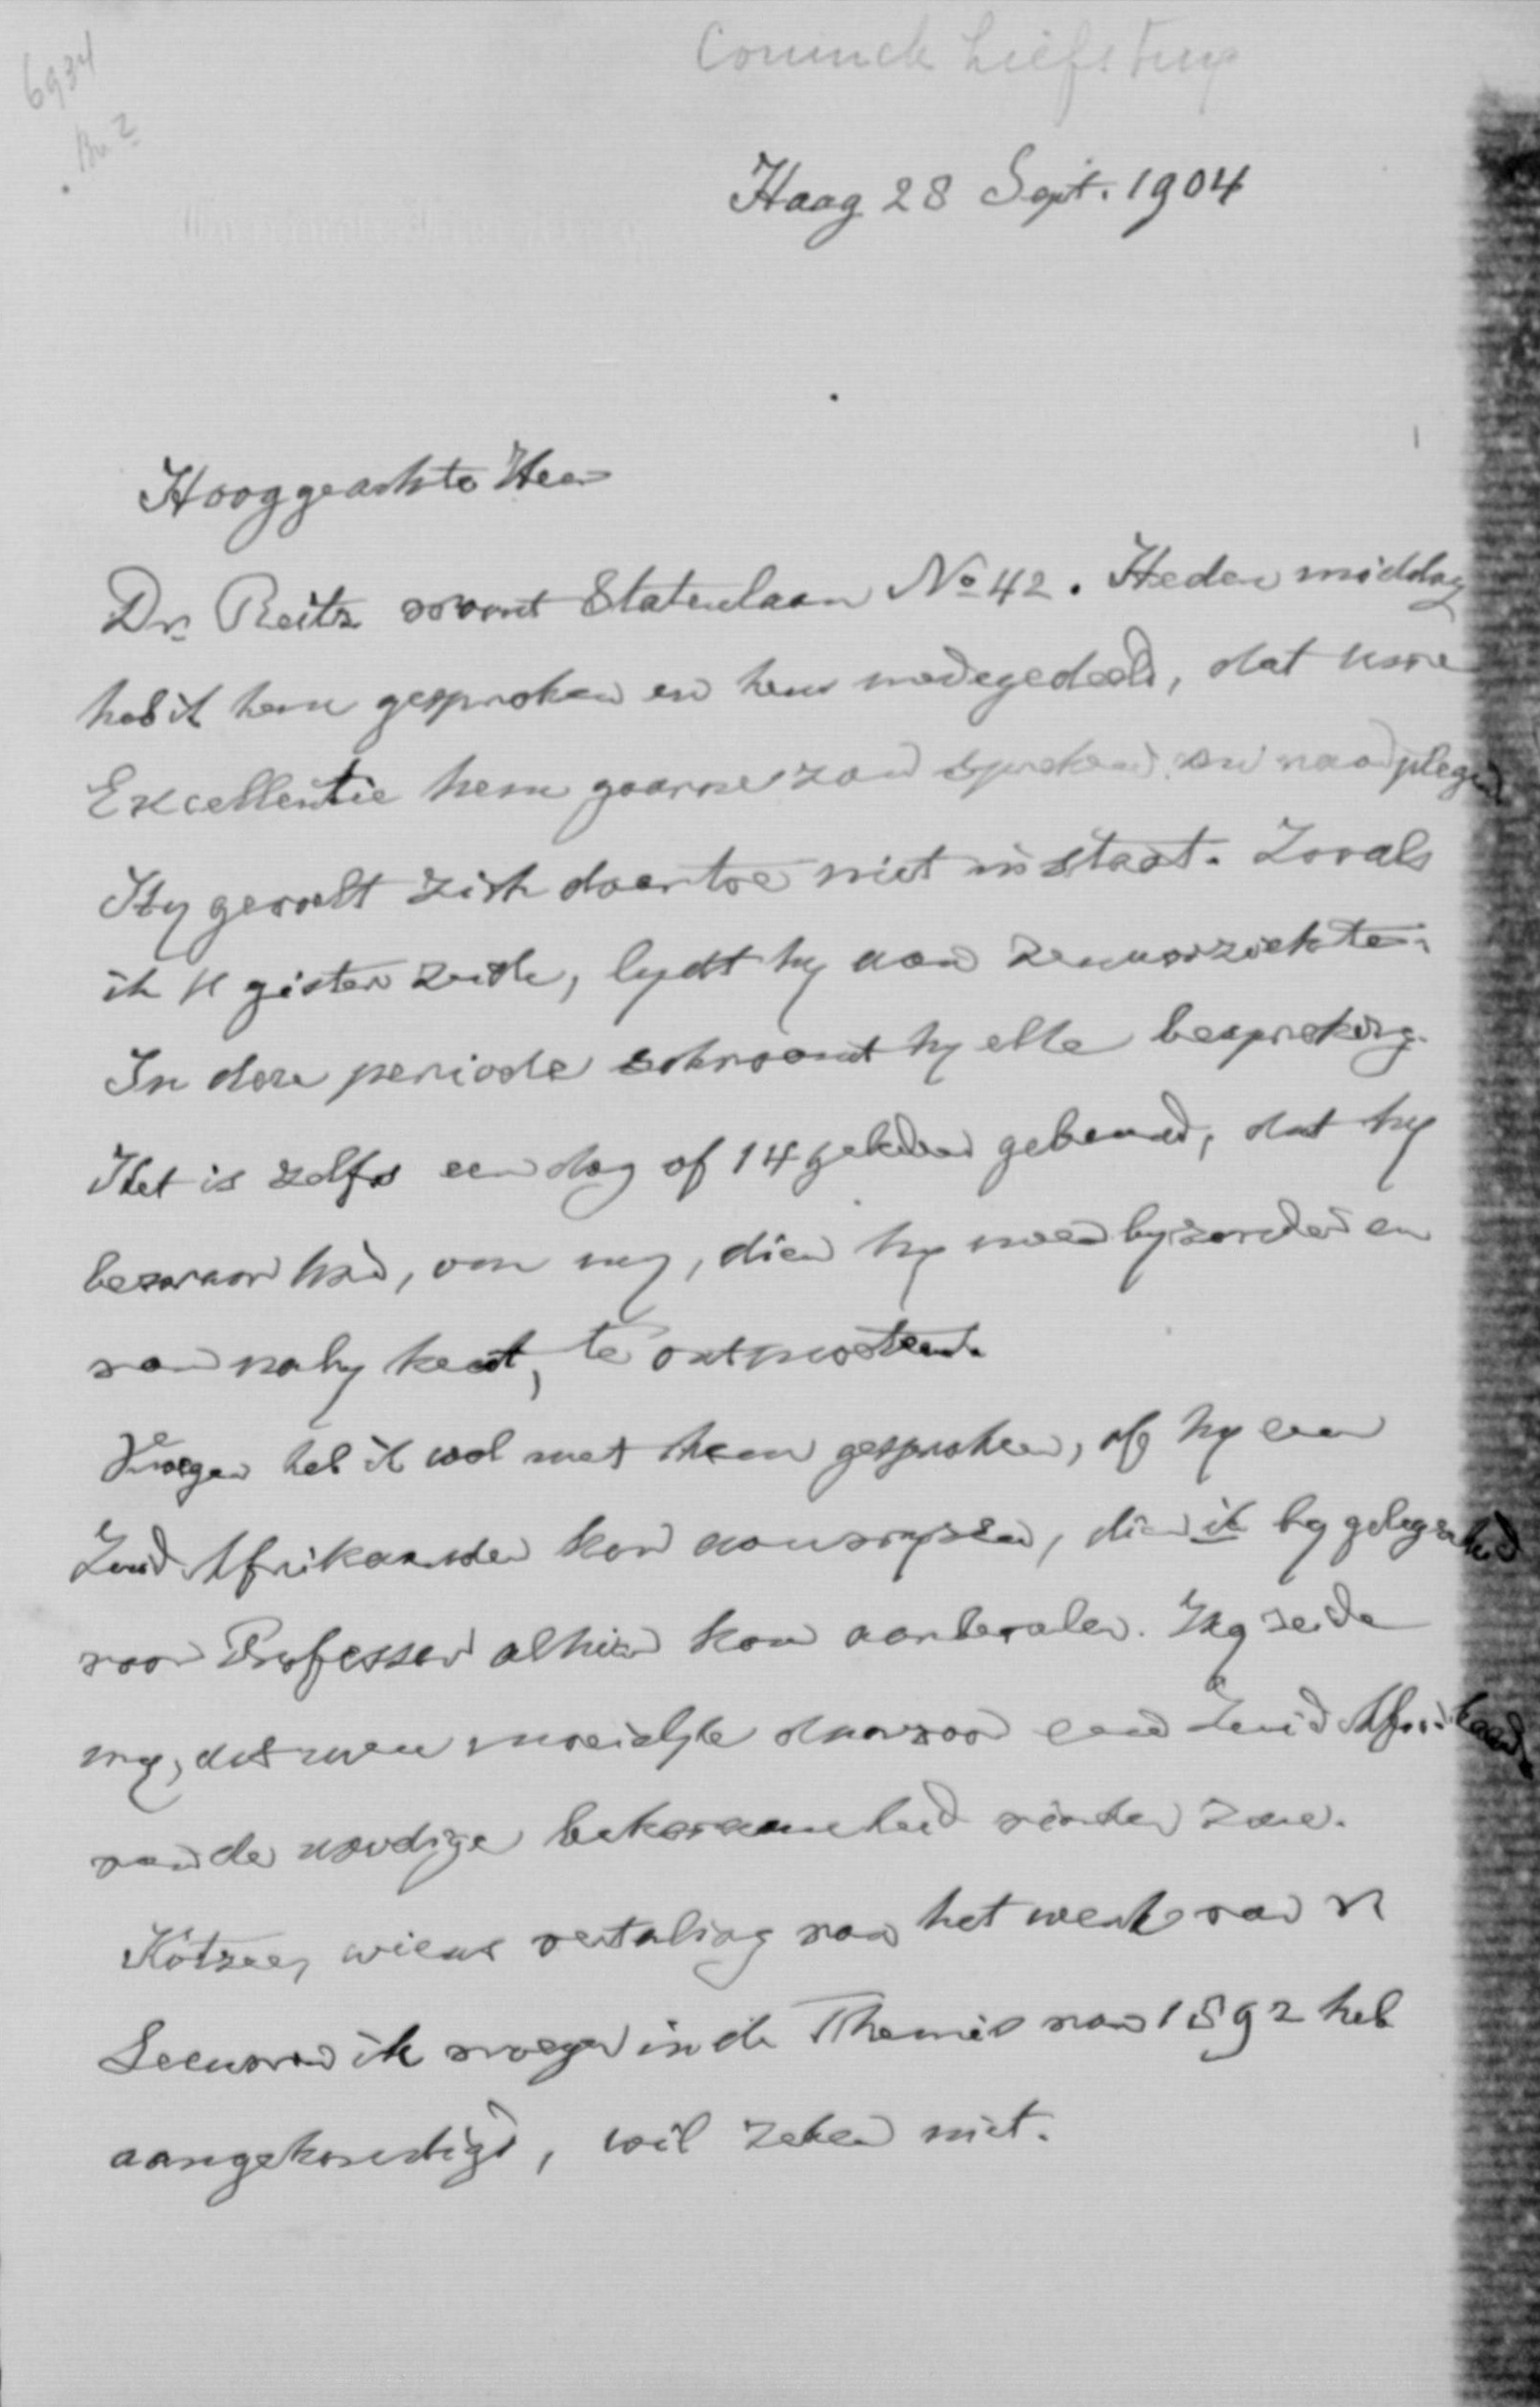 6934
Br. 2
Coninck Liefsting
Haag 28 Sept. 1904
Hooggeachte Heer
Dr. Reitz woont Statenlaan No 42. Heden middag
heb ik hem gesproken en hem medegedeeld, dat Uwe
Excellentie hem gaarne zou spreken en raadplegen
Hy gevoelt zich daartoe niet in staat. Zooals
ik U gister zeide, lydt hy aan zenuwziekte.
In deze periode schroomt hy elke bespreking.
Het is zelfs een dag of 14 geleden gebeurd, dat hy
bezwaar had, om my, dien hy meer byzonder en
van naby kent, te ontmoeten.
Vroeger heb ik wel met hem gesproken, of hy een
Zuid Afrikaander kon aanwyzen, dien ik by gelegenheid
voor Professor alhier kon aanbevelen. Hy zeide
my, dat men moeielyk daarvoor een Zuid Afrikaand.
van de noodige bekwaamheid vinden zou.
Kotzee, wiens vertaling van het werk van V
Leeuwen ik vroeger in de Themis van 1892 heb
aangekondigd, wil zeker niet.